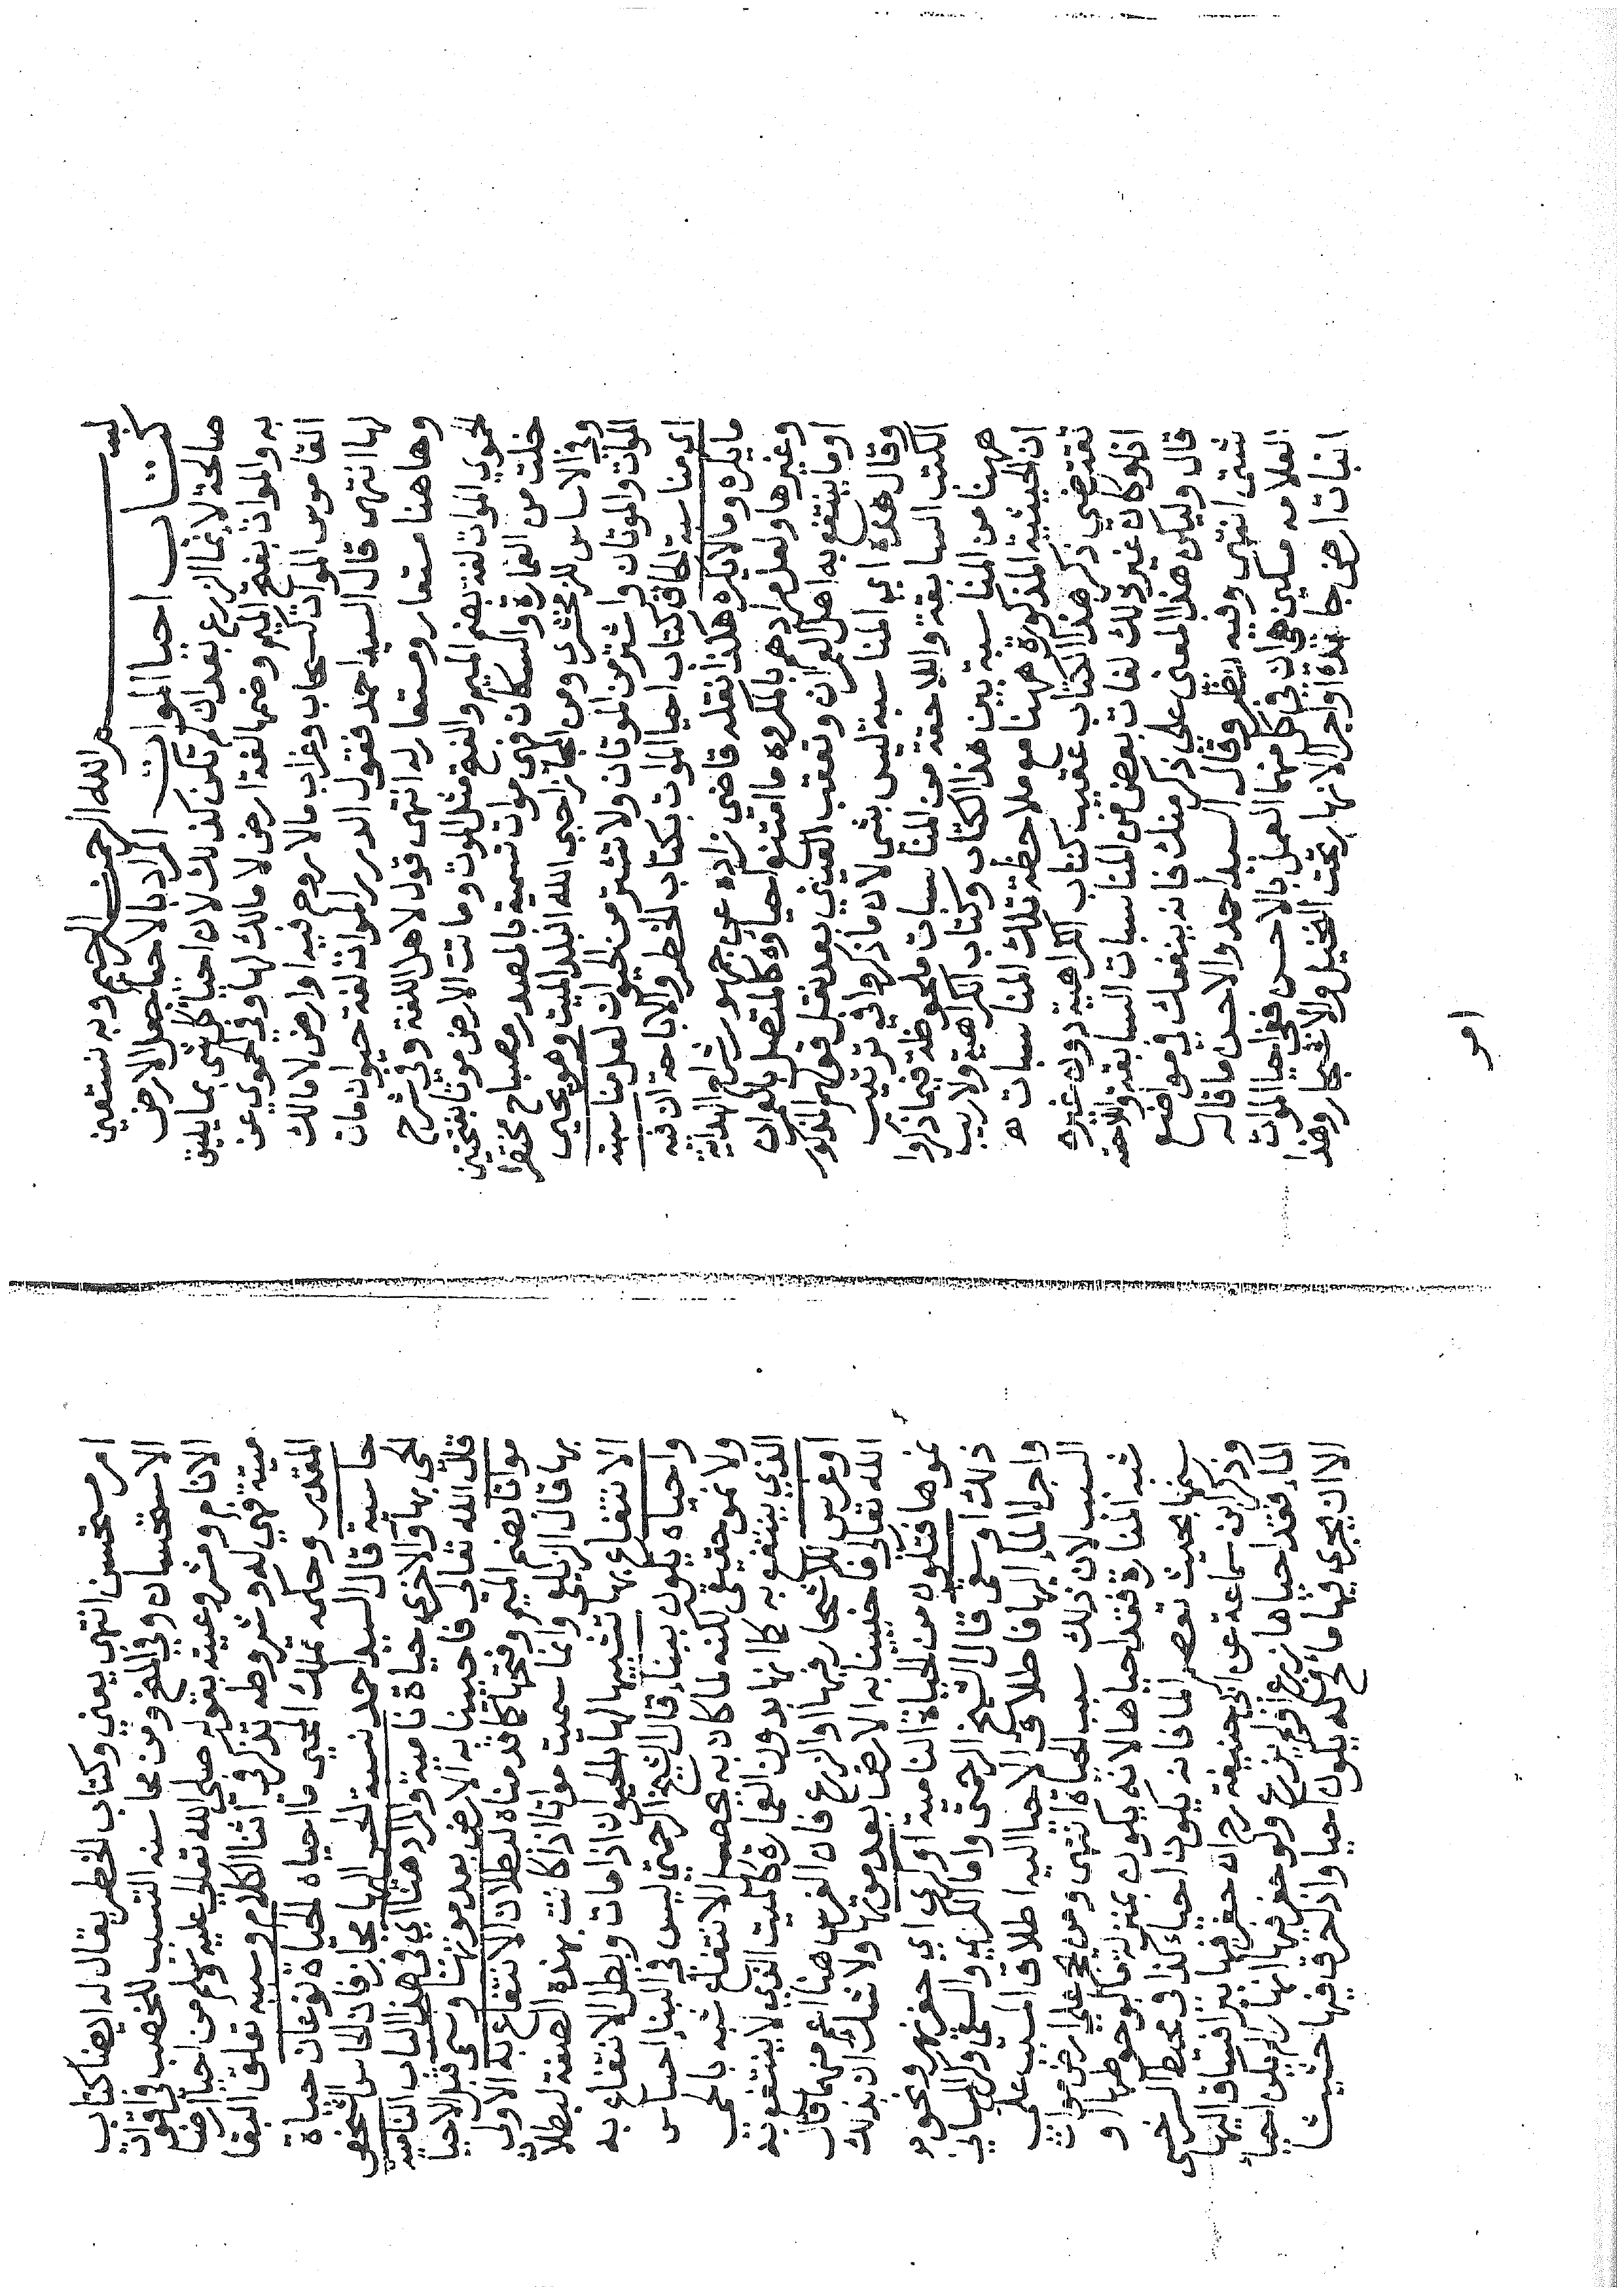 بسم الله الرحمن الرحيم وبه نستعين
كتاب احيا الموات المراد بالاحيا جعل الارض
صالحة لانما الزرع بعد ان لم تكن كذلك لان احيا كل شي بما يليق
به والموات بفتح الميم وضمها لغة ارض لا مالك لها وفي الحموي عن
القاموس الموات كسحاب وغراب مالا روح فيه او ارض لا مالك
لها انتهى قال السيد احمد فقول الدرر الموات لغة حيوان مات
وها هنا مستعار ومستعار له انتهى قول لاهل اللغة وفي شرح
الحموي الموات لغة بضم الميم والفتح مثل الموت وماتت الارض موتانا بفتحتين
خلت من العمارة والسكان فهي موات تسمية بالمصدر مصباح مختصرا
وفي الاساس للزمخشري ومن المجاز احيى الله البلد الميت وهو يحيي
الموات والموتان واشتر من الموتان ولا تشتر من الحيوان لعل مناسبته
اي مناسبة الحاق كتاب احيا الموات بكتاب الحظر والاباحة ان فيه
ما يكره وما لا يكره هكذا نقله قاضي زاده عن جمهور شراح الهداية
وغيرها ولعل مرادهم بالمكروه ما امتنع احياؤه كالمتصل بالعمران
او ما ينتفع به اهل العمران وتعقب العيني بعد نقل قولهم المذكور
وقال هذه اي المناسبة ليس بشي لان ما ذكروا في ترتيب
الكتب السابقة واللاحقة من المناسبات ملحوظة فيما ذكروا
ههنا من المناسبة بين هذا الكتاب وكتاب الكراهية ولا ريب
ان الحيثية المذكورة ههنا مع ملاحظة تلك المناسبات
تقتضي ذكر هذا الكتاب عقيب كتاب الكراهية دون غيره
اذ لو كان غير ذلك لفات بعض من المناسبات السابقة واللاحقة
قال وليكن هذا المعنى على ذكر منك فانه ينفعك في مواضع
شتى انتهى وفيه نظر وقال السيد احمد والاحسن ما قاله
العلامه مسكين هي ان في كل منهما العمل بالاحسن ففي احيا الموات
انبات ارض جامدة او اجرا الانهار تحت النخيل والاشجار وهذا
امر
امر مستحسن انتهى يعني وكتاب الحظر يقال له ايضا كتاب
الاستحسان وفي المنح ومن محاسنه التسبب للخصب في اقوات
الانام ومشروعيته بقوله صلى الله تعالى عليه وسلم من احيا ارضا
ميتة فهي له وشروطه تذكر في اثنا الكلام وسببه تعلق البقا
المقدر وحكمه تملك المحيي ما احياه الحياة نوعان حياة
حاسية قال السيد احمد نسبة الحس اليها مجاز فان الحاس الشخص
الحي بها والاخرى حياة نامية والمراد هنا اي في هذا الباب النامية
قال الله تعالى فاحيينا به الارض بعد موتها وسمي قبل الاحيا
مواتا بضم الميم وفتحها كما قدمناه لبطلان الانتفاع به الاولى
بها قال الزيلعي وانما سميت مواتا اذا كانت بهذه الصفة لبطلان
الانتفاع بها تشبيها لها بالحيوان اذا مات وبطل الانتفاع به
واحياه يكون ببناء قال الشيخ الرحمتي ليس في البناء احساس
ولا نمو حقيقي لكنه لما كان به يحصل الانتفاع شبه بالحي
الذي ينتفع به كما انها بدون العمارة كالميت الذي لا ينتفع به
او غرس للاشجار فيها او الزرع فان الغرس هنا اعم منهما قال
الله تعالى فاحيينا به الارض بعد موتها ولا شك ان بذلك
نموها فتكون من الحياة النامية او كري اي حفر نهر ونحو
ذلك او سقي قال الشيخ الرحمتي واما الكري والسقي وكري المساني
واجرا الماء اليها فاطلاق الاحيا اليه اطلاق المسبب على
السبب لان ذلك سبب الحياة انتهى ومن حجر على ارض موات
شبه المنارة فقد احياها لانه يكون بمنزلة ما لو حوطها او
سنمها بحيث تعصم الما فانه يكون احياء كذا في محيط السرخسي
وذكر ابن سماعة عن ابي حنيفة رح ان حفر فيها بيرا فساق اليها
الماء فقد احياها زرع او لم يزرع ولو حفر فيها انهارا لم يكن احياء
الا ان يجري فيها ماء فح له يكون احيا واذ احرق فيها حشيشا